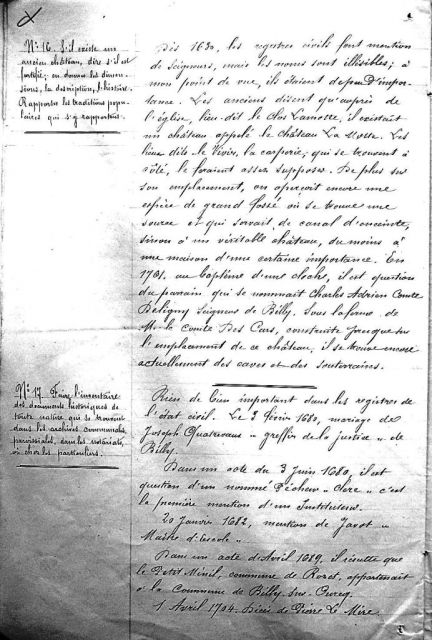 N° 16. S'il existe un
ancien château, dire s'il est
fortifié; en donner les dimen-
sions, la description, l'histoire.
Rapporter les traditions popu-
laires qui s'y rapportent.
Dès 1630, les registres civils font mention
de Seigneurs, mais les noms sont illisibles; à
mon point de vue, ils étaient de peu d'impor-
tance. Les anciens disent qu'auprès de
l'église, lieu-dit le Clos Lamotte, il existait
un château appelé le château La Motte. Les
lieux dits le Vivier, la carperie, qui se trouvent à
côté, le feraient assez supposer. De plus sur
son emplacement, on aperçoit encore une
espèce de grand fossé où se trouve une
source et qui servait de canal d'enceinte,
sinon à un véritable château, du moins à
une maison d'une certaine importance. En
1761, au baptême d'une cloche, il est question
du parrain qui se nommait Charles Adrien Comte
Deligny Seigneur de Billy. Sous la ferme de
Mr. le Comte Des Cars, construite presque sur
l'emplacement de ce château, il se trouve encore
actuellement des caves et des souterrains.
N° 17. Faire l'inventaire
des documents historiques de
toute nature qui se trouvent
dans les archives communales,
paroissiales, dans les notariats,
ou chez les particuliers.
Rien de bien important dans les registres de
l'état civil. Le 3 février 1680, mariage de
Joseph Quatrevaux "greffier de la justice" de
Billy.
Dans un acte du 3 Juin 1680, il est
question d'un nommé Pécheur "Clerc" c'est
la première mention d'un Instituteur.
20 Janvier 1682, mention de Javot "
Maître d'école".
Dans un acte d'Avril 1689, il résulte que
le Petit Ménil, commune de Rozet, appartenait
à la Commune de Billy-sur-Ourcq.
1 Avril 1704. Décès de Pierre Le Mire